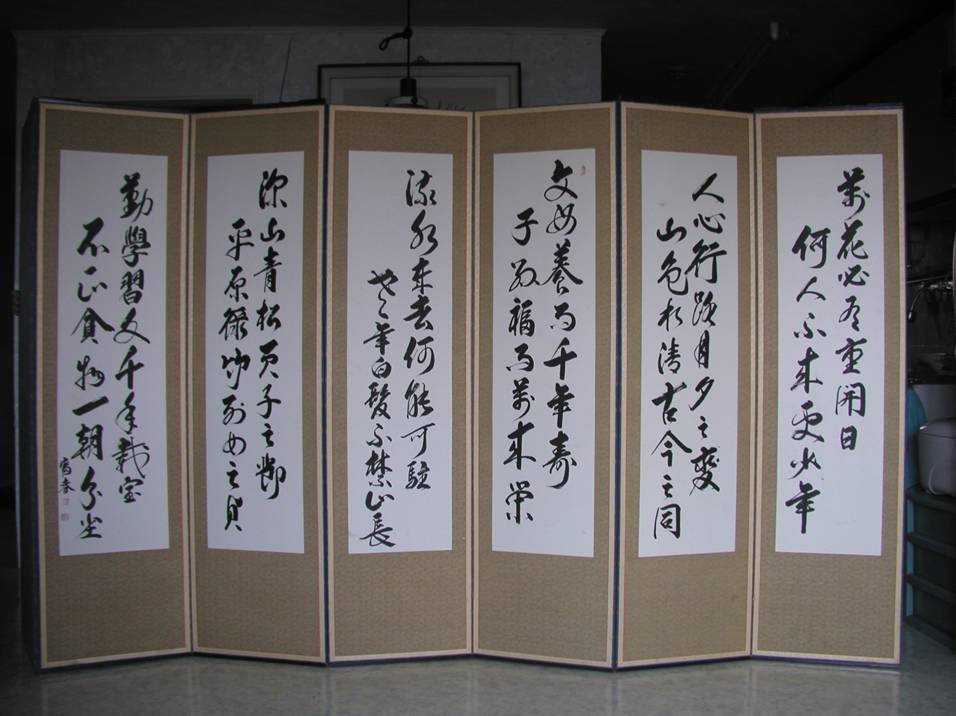 萬花必有重開日
何人不来更少年
人心行路月夕之變
山色水清古今之同
父母養而千年壽
子孫福而萬来榮
流水来去何能可駐
年白髮不禁止長
深山青松君子之節
平原綠竹列女之貞
勤學習文千年載宝
不正貪物一朝分尘
春